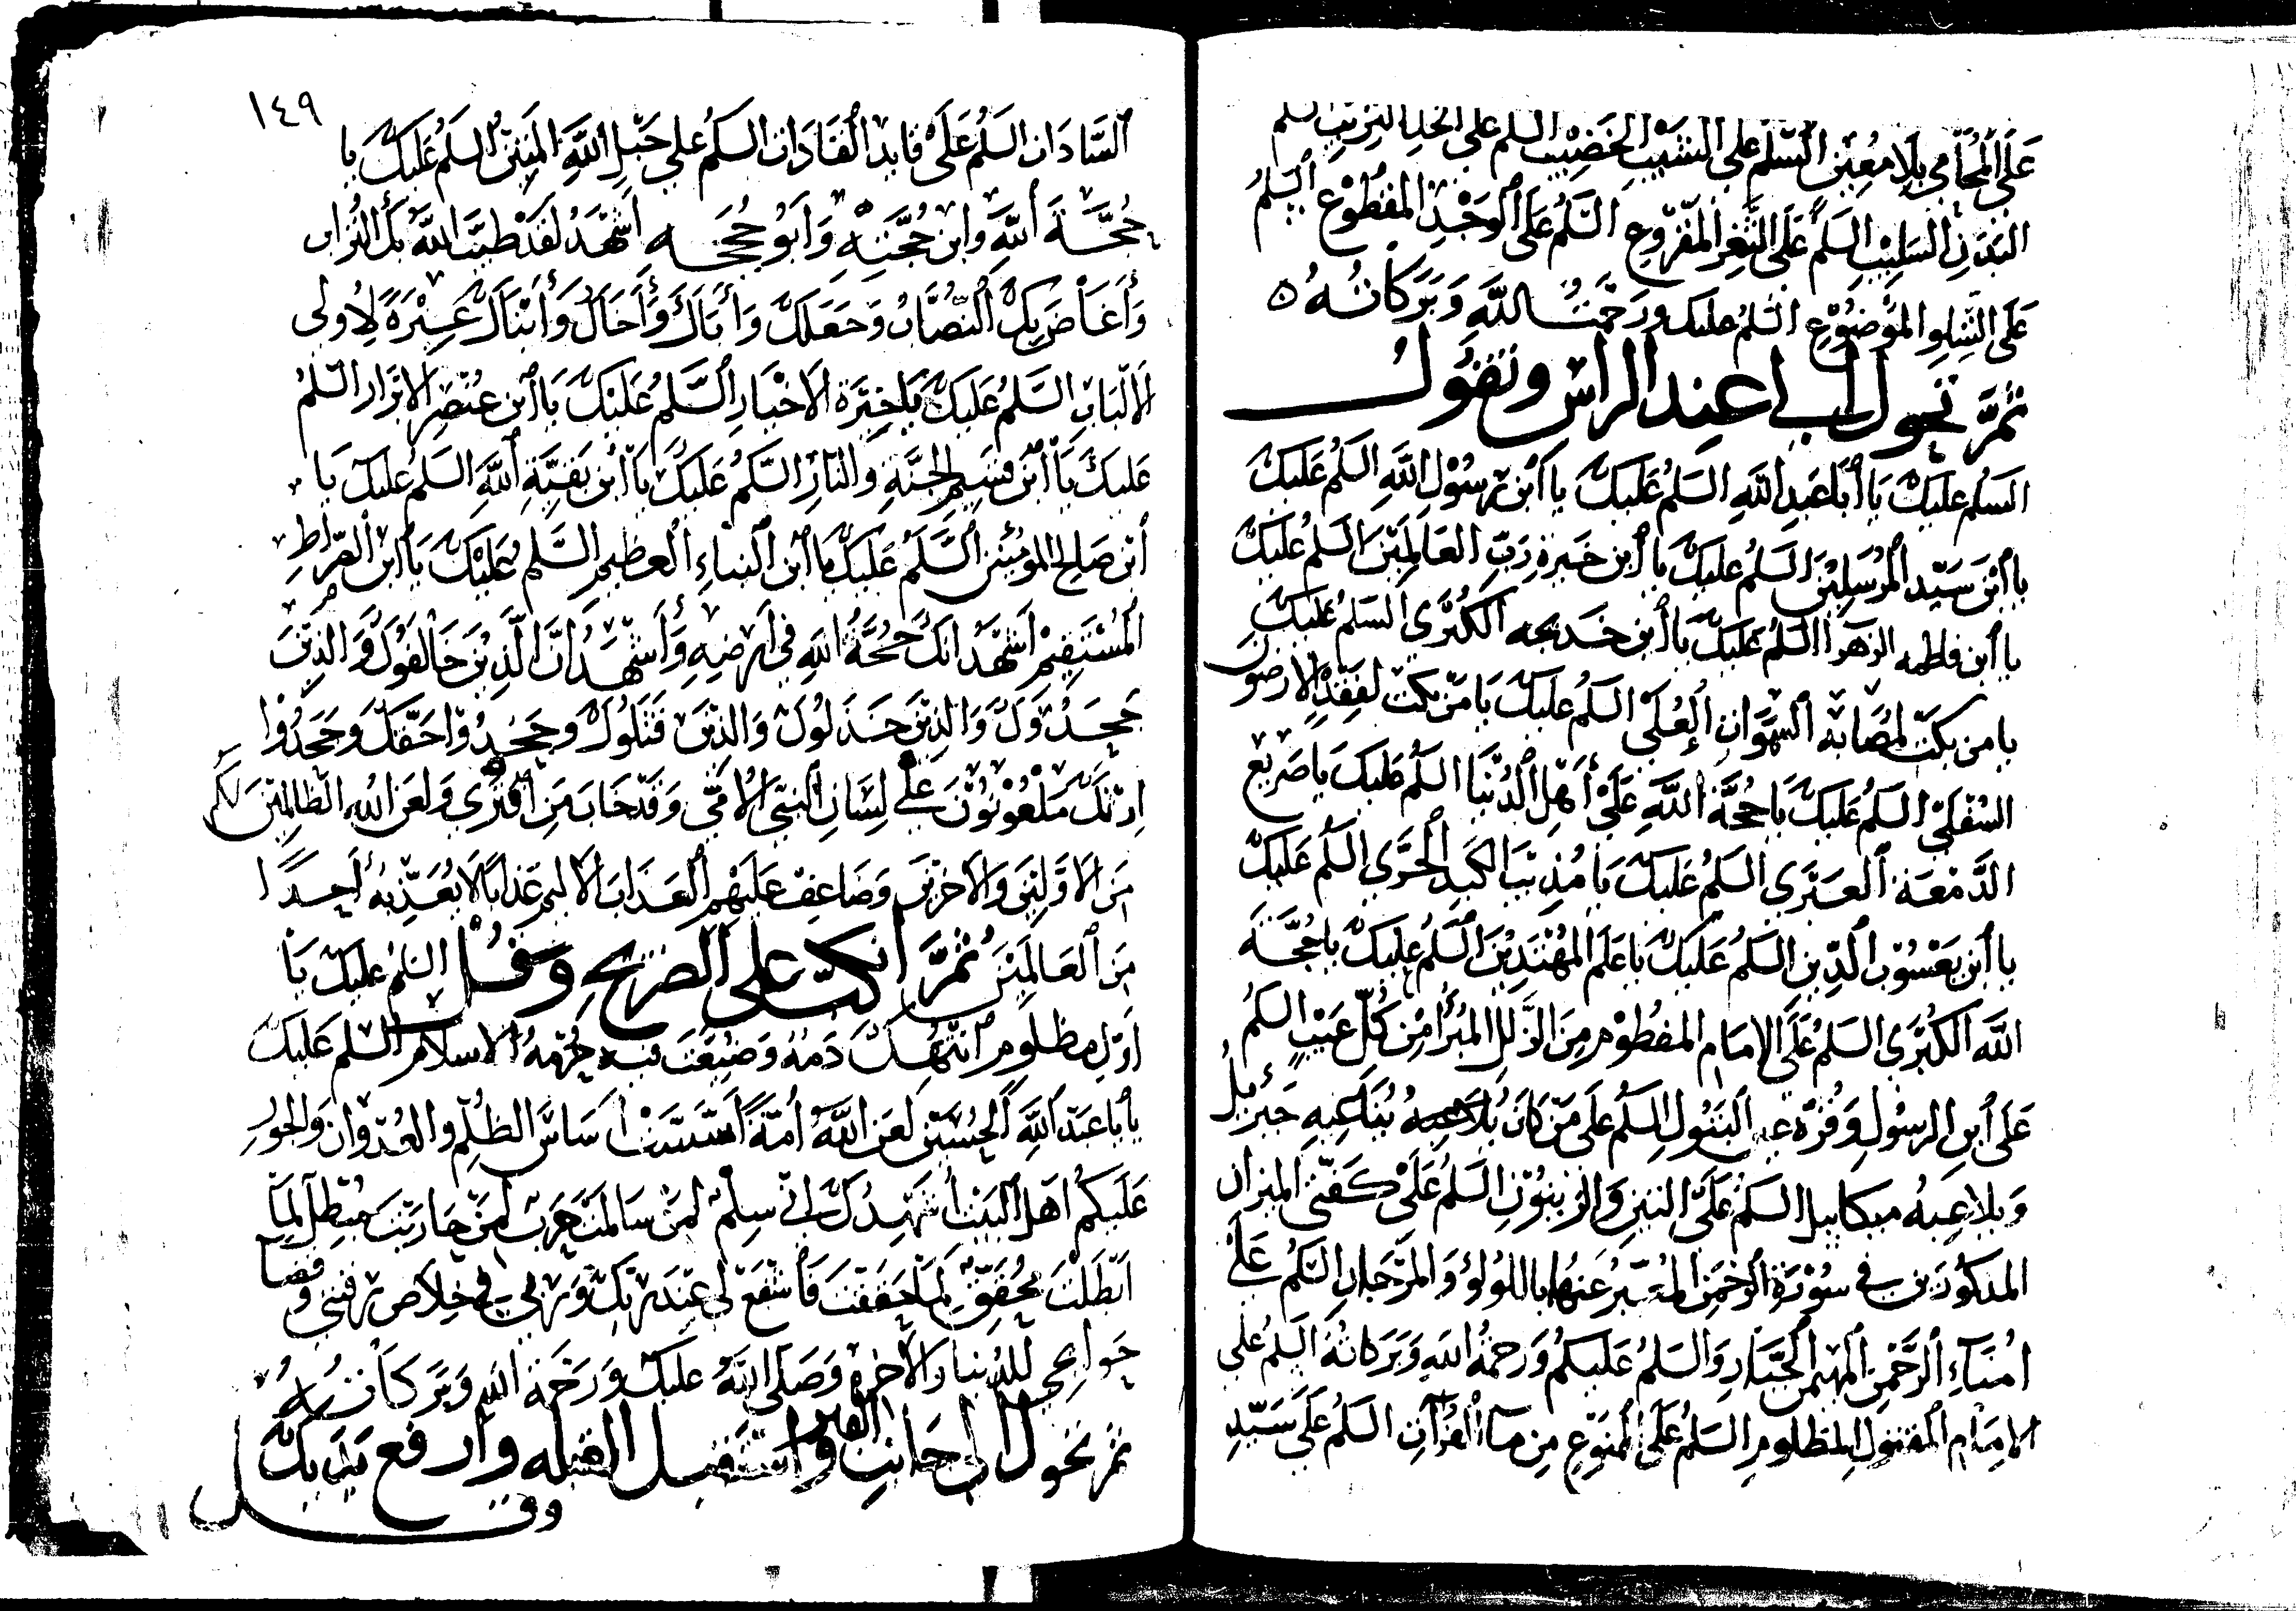 على المحامي بلا معين السلم على الشيب الخضيب السلم على الخد التريب السلم
البدن السليب السلم على الثغر المقروع السلم على الوجد المقطوع السلم
على الشلو الموضوع السلم عليك ورحمت الله وبركاته
ثم تحول الى عند الراس وتقول
السلم عليك يا أبا عبد الله السلم عليك يا ابن رسول الله السلم عليك
يا ابن سيد المرسلين السلم عليك يا ابن خيرة رب العالمين السلم عليك
يا ابن فاطمه الزهرا السلم عليك يا ابن خديجه الكبرى السلم عليك
يا من بكت لمصابه السموات العلى السلم عليك يا من بكت لفقده الارضون
السفلى السلم عليك يا حجة الله على أهل الدنيا السلم عليك يا صريع
الدمعة العبرى السلم عليك يا مذيب الكبد الحرى السلم عليك
يا ابن يعسوب الدين السلم عليك يا علم المهتدين السلم عليك يا حجة
الله الكبرى السلم على الامام المفطوم من الزلل المبرأ من كل عيب السلم
على ابن الرسول وقرة عين البتول السلم على من كان يلاعبه يناغيه جبرئيل
ويلاعبه ميكاييل السلم على التين والزيتون السلم على كفتي الميزان
المذكورين في سورة الرحمن المعبر عنهما باللولؤ والمرجان السلم على
امناء الرحمن المهيمن الجبار والسلم عليكم ورحمة الله وبركاته السلم على
الامام المقتول المظلوم السلم على الممنوع من ماء الفرات السلم على سيد
١٤٩
السادات السلم على قايد القادات السلم على حبل الله المتين السلم عليك يا
حجة الله وابن حجته وابو حججه اشهد لقد طيب الله بك التراب
وأعاض بك النصاب وجعلك وأباك وأخاك وأبناك عبرة لاولى
الالباب السلم عليك يا خيرة الاخيار السلم عليك يا ابن عنصر الابرار السلم
عليك يا ابن قسيم الجنة والنار السلم عليك يا ابن بقية الله السلم عليك يا
ابن صالح المومنين السلم عليك يا ابن النباء العظيم السلم عليك يا ابن الصراط
المستقيم اشهد انك حجة الله في ارضه وأشهد ان الذين خالفوك والذين
جحدوك والذين خذلوك والذين قتلوك وجحدوا حقك وجحدوا
ارثك ملعونون على لسان النبي الامي وقد خاب من افترى ولعن الله الظالمين لكم
من الاولين والاخرين وضاعف عليهم العذاب الاليم عذابا لا يعذبه أحدا
من العالمين ثم انكب على الضريح وقل السلم عليك يا
اول مظلوم انتهك دمه وضيعت فيه حرمة الاسلام السلم عليك
يا أبا عبد الله الحسين لعن الله أمة أسست اساس الظلم والعدوان والجور
عليكم اهل البيت أشهدك اني سلم لمن سالمت حرب لمن حاربت مبطل لما
ابطلت محقق لما حققت فاشفع لى عند ربك وربي في خلاص رقبتي وقضا
حوايجي للدنيا والاخرة وصلى الله عليك ورحمة الله وبركاته
ثم تحول الى جانب القبر واستقبل القبله وارفع يديك
وقل